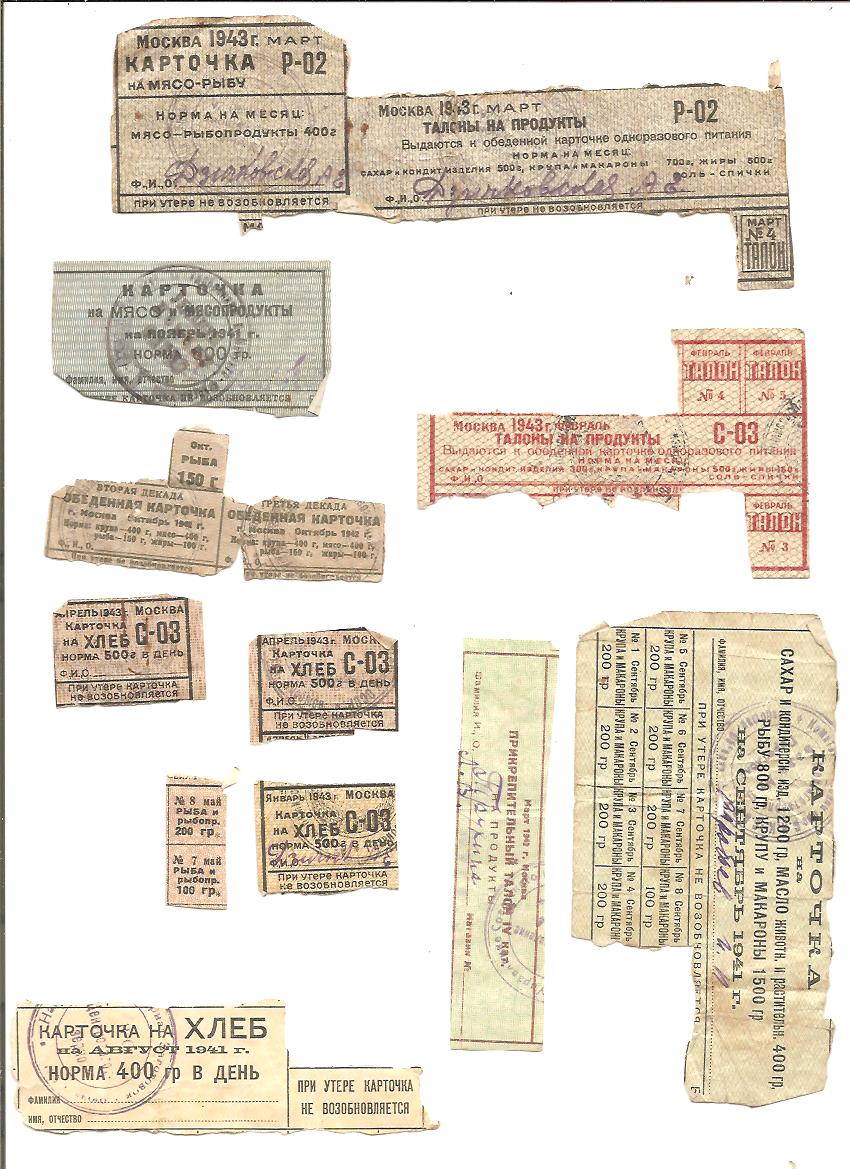 Москва 1943 г. МАРТ
КАРТОЧКА Р-02
НА МЯСО-РЫБУ
НОРМА НА МЕСЯЦ:
МЯСО-РЫБОПРОДУКТЫ 400г
Ф.,И.,О.
ПРИ УТЕРЕ НЕ ВОЗОБНОВЛЯЕТСЯ
Москва 1943 г. МАРТ Р-02
ТАЛОНЫ НА ПРОДУКТЫ
Выдаются к обеденной карточке одноразового питания
НОРМА НА МЕСЯЦ:
САХАР и КОНДИТ. ИЗДЕЛИЯ 500г, КРУПА и МАКАРОНЫ 700г, ЖИРЫ 500г
СОЛЬ-СПИЧКИ
Ф.,И.,О.
ПРИ УТЕРЕ НЕ ВОЗОБНОВЛЯЕТСЯ
МАРТ
№ 4
ТАЛОН
КАРТОЧКА
на МЯСО и МЯСОПРОДУКТЫ
на НОЯБРЬ 1941 г.
НОРМА гр.
Фамилия, имя, отчество
КАРТОЧКА НЕ ВОЗОБНОВЛЯЕТСЯ
ФЕВРАЛЬ ФЕВРАЛЬ
ТАЛОН ТАЛОН
№ 4 № 5
Москва 1943 г. ФЕВРАЛЬ С-03
ТАЛОНЫ НА ПРОДУКТЫ
Выдаются к обеденной карточке одноразового питания
НОРМА НА МЕСЯЦ
САХАР и КОНДИТ. ИЗДЕЛИЯ 300г, КРУПА и МАКАРОНЫ 500г,
СОЛЬ-СПИЧКИ
Ф.И.О.
ПРИ УТЕРЕ НЕ ВОЗОБНОВЛ
ФЕВРАЛЬ
ТАЛОН
№ 3
Окт.
РЫБА
150 г
ВТОРАЯ ДЕКАДА
ОБЕДЕННАЯ КАРТОЧКА
г. Москва Октябрь 1942 г.
Норма: крупа—400 г, мясо—400 г,
рыба—150 г, жиры—100 г.
Ф., И., О.
При утере не возобновляется
ТРЕТЬЯ ДЕКАДА
ОБЕДЕННАЯ КАРТОЧКА
г. Москва Октябрь 1942 г.
Норма: крупа—400 г, мясо—400 г,
рыба—150 г, жиры—100 г.
Ф., И., О.
При утере не возобновляется
АПРЕЛЬ 1943 г. МОСКВА
КАРТОЧКА
НА ХЛЕБ С-03
НОРМА 500г В ДЕНЬ
Ф.И.О.
ПРИ УТЕРЕ КАРТОЧКА
НЕ ВОЗОБНОВЛЯЕТСЯ
АПРЕЛЬ 1943 г. МОСК
КАРТОЧКА
НА ХЛЕБ С-03
НОРМА 500г В ДЕНЬ
Ф.И.О.
ПРИ УТЕРЕ КАРТОЧКА
НЕ ВОЗОБНОВЛЯЕТСЯ
№ 8 май
РЫБА и
рыбопр.
200 гр.
№ 7 май
РЫБА и
рыбопр.
100 гр.
ЯНВАРЬ 1943 г. МОСКВА
КАРТОЧКА
НА ХЛЕБ С-03
НОРМА 500г В ДЕНЬ
Ф.И.О.
ПРИ УТЕРЕ КАРТОЧКА
НЕ ВОЗОБНОВЛЯЕТСЯ
Март 1942 г. Москва
ПРИКРЕПИТЕЛЬНЫЙ ТАЛОН IV кат.
НА ПРОДУКТЫ
Фамилия И., О.
Магазин №
КАРТОЧКА
на
САХАР и КОНДИТЕРСК. ИЗД. 1200 гр., МАСЛО ЖИВОТН. и РАСТИТЕЛЬН. 400 гр.
РЫБУ 800 гр., КРУПУ и МАКАРОНЫ 1500 гр
НА СЕНТЯБРЬ 1941 г.
ФАМИЛИЯ, ИМЯ, ОТЧЕСТВО
ПРИ УТЕРЕ КАРТОЧКА НЕ ВОЗОБНОВЛЯЕТСЯ
№ 5 Сентябрь № 6 Сентябрь № 7 Сентябрь № 8 Сентябрь
КРУПА и МАКАРОНЫ КРУПА и МАКАРОНЫ КРУПА и МАКАРОНЫ КРУПА и МАКАРОНЫ
200 гр 200 гр 200 гр 100 гр
№ 1 Сентябрь № 2 Сентябрь № 3 Сентябрь № 4 Сентябрь
КРУПА и МАКАРОНЫ КРУПА и МАКАРОНЫ КРУПА и МАКАРОНЫ КРУПА и МАКАРОНЫ
200 гр 200 гр 200 гр 200 гр
КАРТОЧКА НА ХЛЕБ
на АВГУСТ 1941 г.
НОРМА 400 гр В ДЕНЬ
ФАМИЛИЯ
ИМЯ, ОТЧЕСТВО
ПРИ УТЕРЕ КАРТОЧКА
НЕ ВОЗОБНОВЛЯЕТСЯ